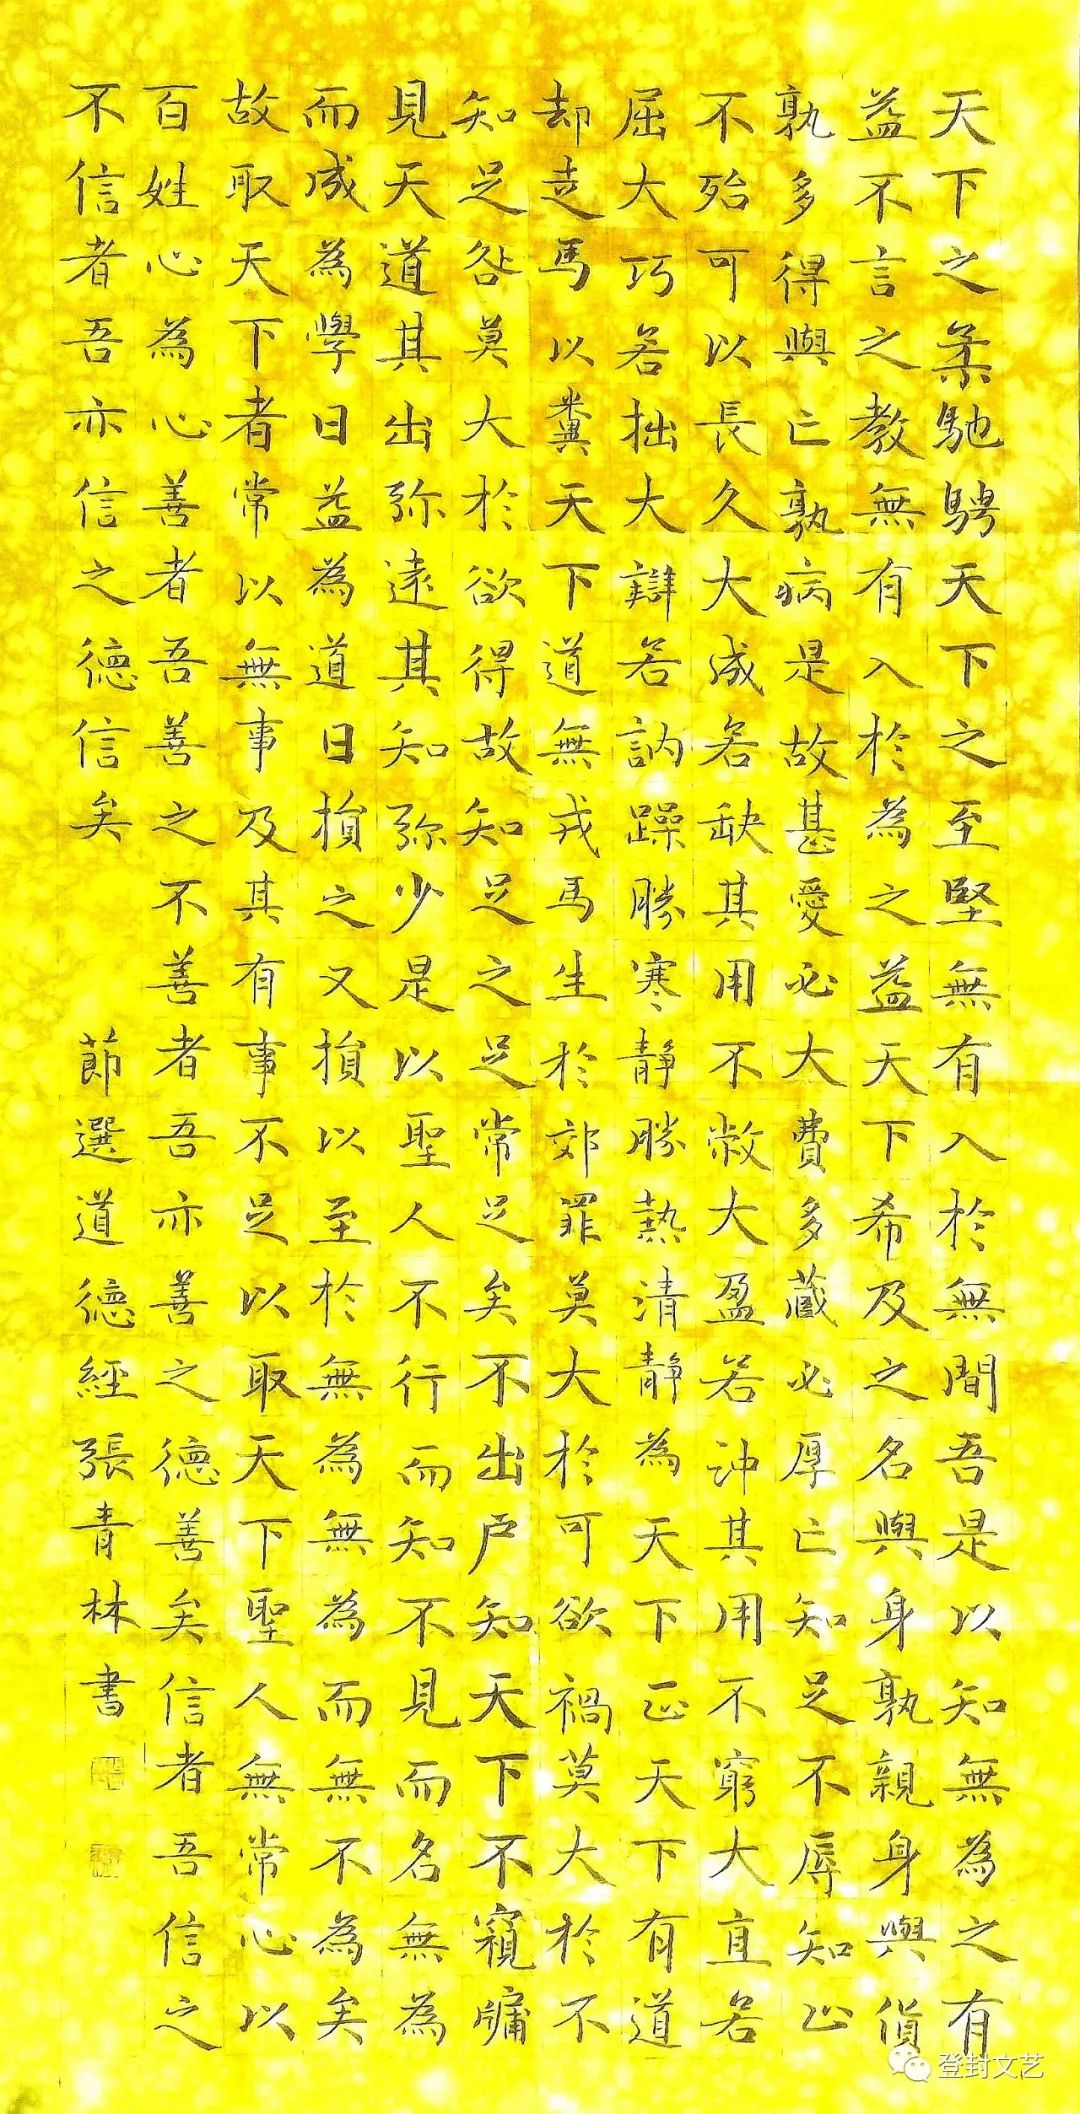 天下之柔馳騁天下之至堅無有入於無間吾是以知無為之有
益不言之教無有入於為之益天下希及之名與身孰親身與貨
孰多得與亡孰病是故甚愛必大費多藏必厚亡知足不辱知止
不殆可以長久大成若缺其用不敝大盈若沖其用不窮大直若
屈大巧若拙大辯若訥躁勝寒靜勝熱清靜為天下正天下有道
却走馬以糞天下道無戎馬生於郊罪莫大於可欲禍莫大於不
知足咎莫大於欲得故知足之足常足矣不出戶知天下不窺牖
見天道其出弥遠其知弥少是以聖人不行而知不見而名無為
而成為學日益為道日損之又損以至於無為無為而無不為矣
故取天下者常以無事及其有事不足以取天下聖人無常心以
百姓心為心善者吾善之不善者吾亦善之德善矣信者吾信之
不信者吾亦信之德信矣 節選道德經張青林書
登封文艺